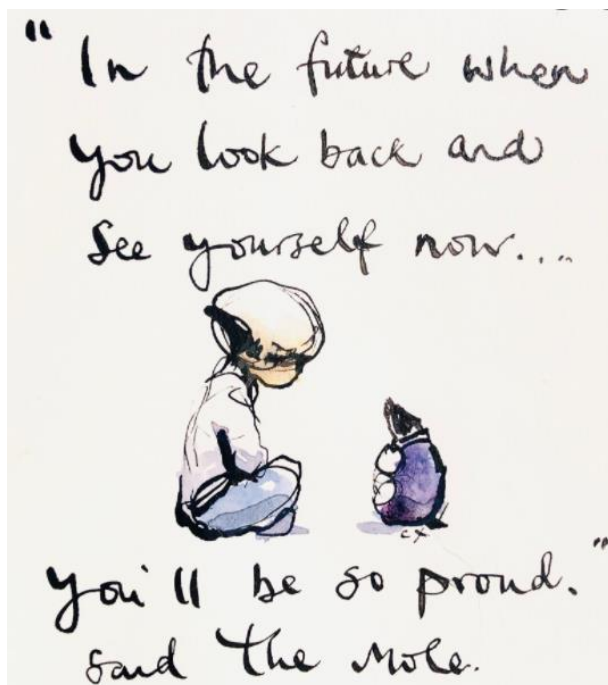 "In the future when
you look back and
see yourself now....
cx
you'll be so proud."
said the Mole.